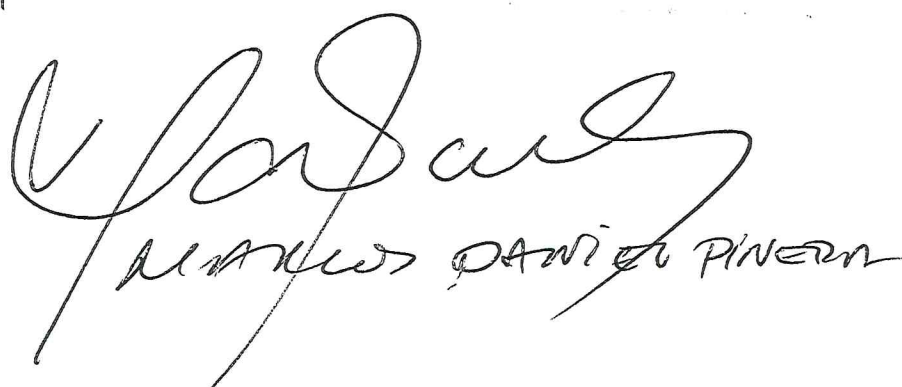 MARCOS DANIEL PINERA